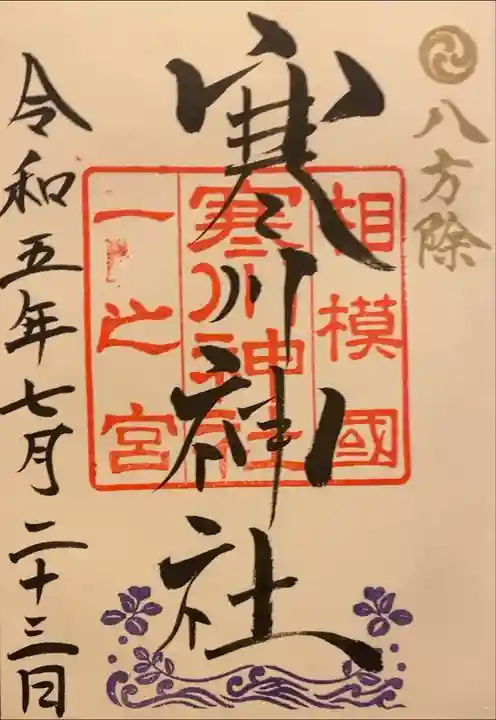 八方除
相模國
寒川神社
一之宮
寒川神社
令和五年七月二十三日